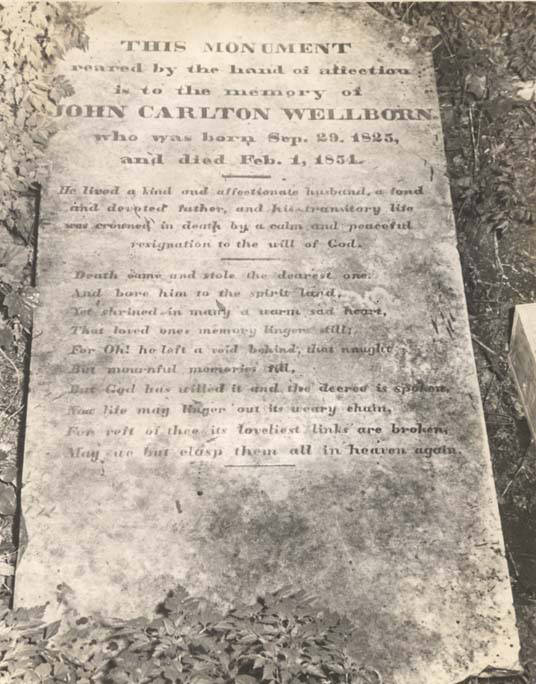 THIS MONUMENT
reared by the hand of affection
is to the memory of
JOHN CARLTON WELLBORN
who was born Sep. 29. 1825,
and died Feb. 1, 1854.
He lived a kind and affectionate husband, a fond
and devoted father, and his transitory life
was crowned in death by a calm and peaceful
resignation to the will of God.
Death came and stole the dearest one.
And bore him to the spirit land,
Yet shrined in many a warm sad heart,
That loved ones memory lingers still;
For Oh! he left a void behind, that naught
But mournful memories fill,
But God has willed it and the decree is spoken.
Now life may linger out its weary chain,
For reft of thee its loveliest links are broken,
May we but clasp them all in heaven again.